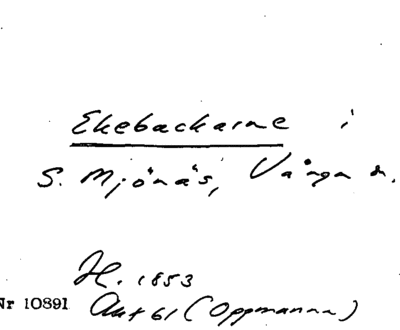 Ekebackarne i
S. Mjönäs, Vånga sn.
H. 1853
Nr 10891 Akt 61 (Oppmanna)